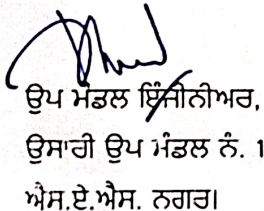 ਉਪ ਮੰਡਲ ਇੰਜੀਨੀਅਰ,
ਉਸਾਰੀ ਉਪ ਮੰਡਲ ਨੰ. 1
ਐਸ.ਏ.ਐਸ. ਨਗਰ।